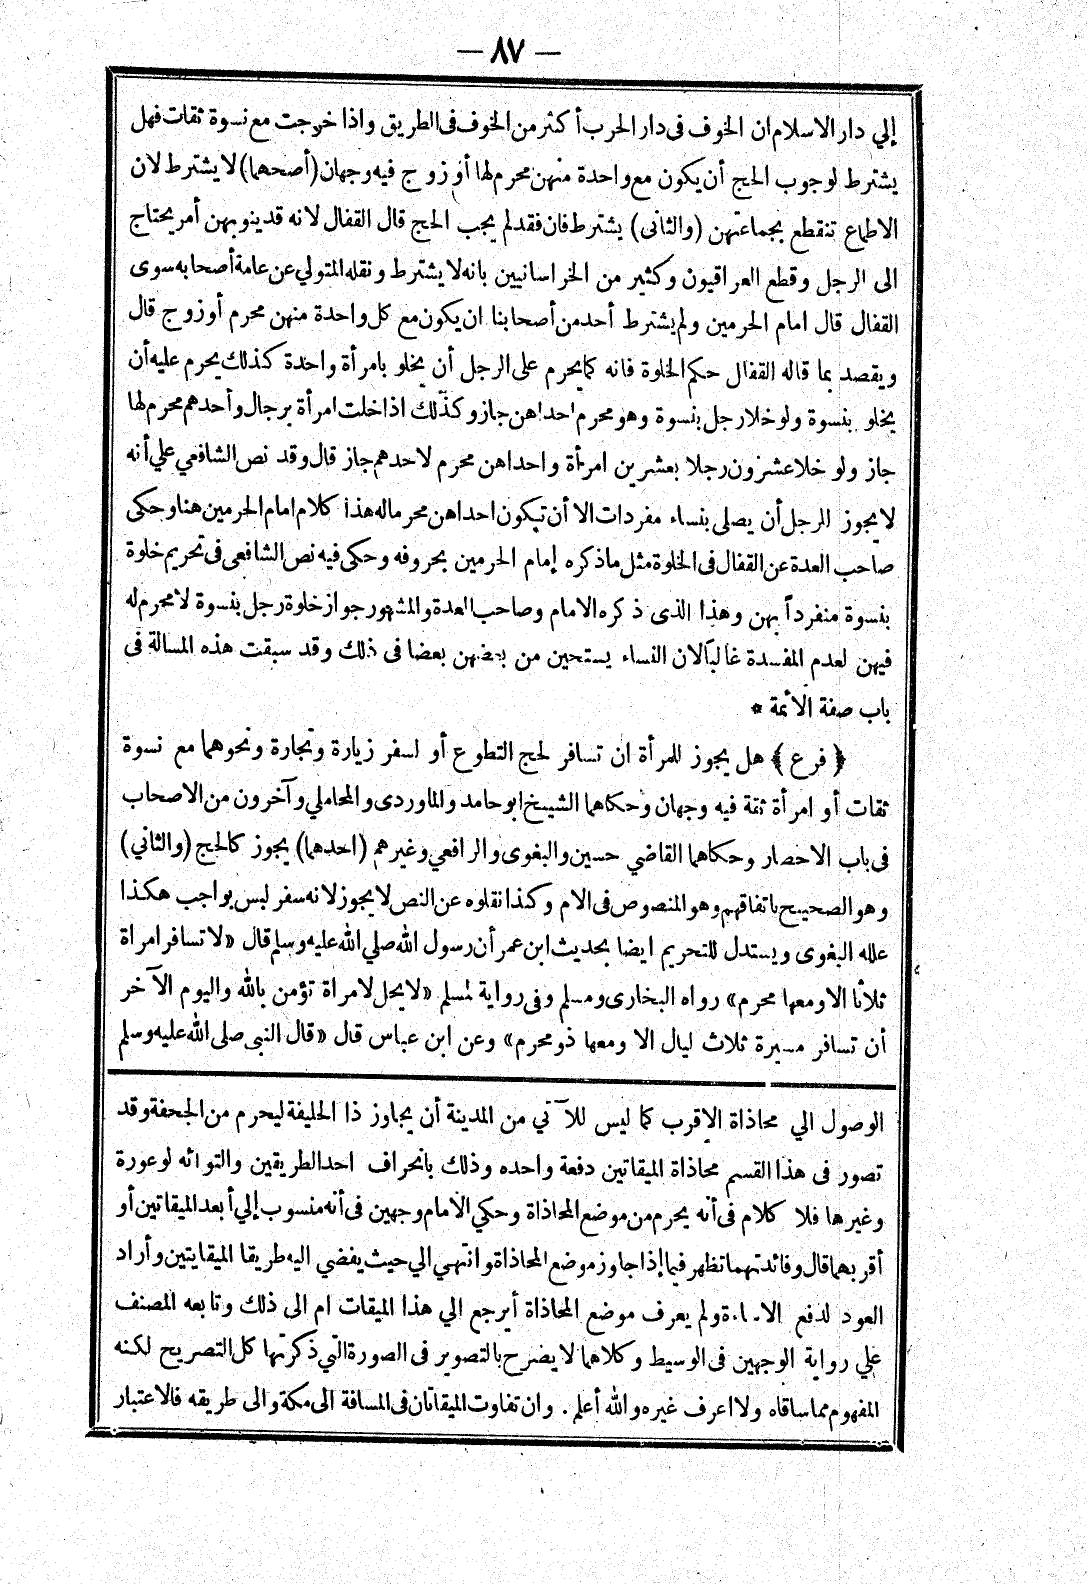 — ٨٧ —
إلي دار الاسلام ان الخوف فى دار الحرب أكثر من الخوف فى الطريق واذا خرجت مع نسوة ثقات فهل
يشترط لوجوب الحج أن يكون مع واحدة منهن محرم لها أو زوج فيه وجهان (أصحهما) لا يشترط لان
الاطماع تنقطع بجماعتهن (والثانى) يشترط فان فقد لم يجب الحج قال القفال لانه قد ينوبهن أمر يحتاج
الى الرجل وقطع العراقيون وكثير من الخراسانيين بانه لا يشترط ونقله المتولي عن عامة أصحابه سوى
القفال قال امام الحرمين ولم يشترط أحد من أصحابنا ان يكون مع كل واحدة منهن محرم أو زوج قال
ويقصد بما قاله القفال حكم الخلوة فانه كما يحرم على الرجل أن يخلو بامرأة واحدة كذلك يحرم عليه أن
يخلو بنسوة ولو خلا رجل بنسوة وهو محرم احداهن جاز وكذلك اذا خلت امرأة برجال وأحدهم محرم لها
جاز ولو خلا عشرون رجلا بعشرين امرأة واحداهن محرم لاحدهم جاز قال وقد نص الشافعي علي أنه
لا يجوز للرجل أن يصلى بنساء مفردات الا أن تكون احداهن محرما له هذا كلام امام الحرمين هنا وحكى
صاحب العدة عن القفال فى الخلوة مثل ما ذكره إمام الحرمين بحروفه وحكى فيه نص الشافعى فى تحريم خلوة
بنسوة منفرداً بهن وهذا الذى ذكره الامام وصاحب العدة والمشهور جواز خلوة رجل بنسوة لا محرم له
فيهن لعدم المفسدة غالباً لان النساء يستحين من بعضهن بعضا فى ذلك وقد سبقت هذه المسالة فى
باب صفة الأئمة *
﴿ فرع ﴾ هل يجوز للمرأة ان تسافر لحج التطوع أو لسفر زيارة وتجارة ونحوهما مع نسوة
ثقات أو امرأة ثقة فيه وجهان وحكاهما الشيخ ابو حامد والماوردى والمحاملي وآخرون من الاصحاب
فى باب الاحصار وحكاهما القاضي حسين والبغوى والرافعي وغيرهم (احدهما) يجوز كالحج (والثاني)
وهو الصحيح باتفاقهم وهو المنصوص فى الام وكذا نقلوه عن النص لا يجوز لانه سفر ليس بواجب هكذا
علله البغوى ويستدل للتحريم ايضا بحديث ابن عمر أن رسول الله صلي الله عليه وسلم قال «لا تسافر امراة
ثلاثا الا ومعها محرم» رواه البخارى ومسلم وفى رواية لمسلم «لا يحل لامراة تؤمن بالله واليوم الآخر
أن تسافر مسيرة ثلاث ليال الا ومعها ذو محرم» وعن ابن عباس قال «قال النبى صلى الله عليه وسلم
الوصول الي محاذاة الاقرب كما ليس للآتي من المدينة أن يجاوز ذا الحليفة ليحرم من الجحفة وقد
تصور فى هذا القسم محاذاة الميقاتين دفعة واحده وذلك بانحراف احد الطريقين والتوائه لوعورة
وغيرها فلا كلام فى أنه يحرم من موضع المحاذاة وحكي الامام وجهين فى أنه منسوب إلي أبعد الميقاتين أو
أقربهما قال وفائدتهما تظهر فيما إذا جاوز موضع المحاذاة وانتهي الي حيث يفضي اليه طريقا الميقايتين وأراد
العود لدفع الاساءة ولم يعرف موضع المحاذاة أيرجع الي هذا الميقات ام الى ذلك وتابعه المصنف
علي رواية الوجهين فى الوسيط وكلاهما لا يضرح بالتصوير فى الصورة التي ذكرتها كل التصريح لكنه
المفهوم مما ساقاه ولا اعرف غيره والله أعلم . وان تفاوت الميقاتان فى المسافة الى مكة والى طريقه فالاعتبار